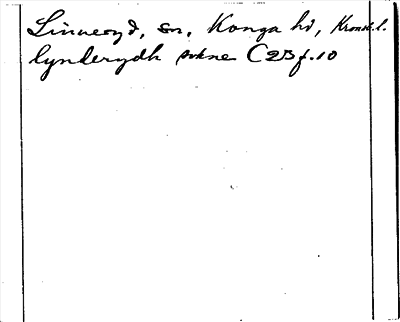 Linneryd, sn, Konga hd, Kronob. l.
lynderydh sokne C2B f. 10